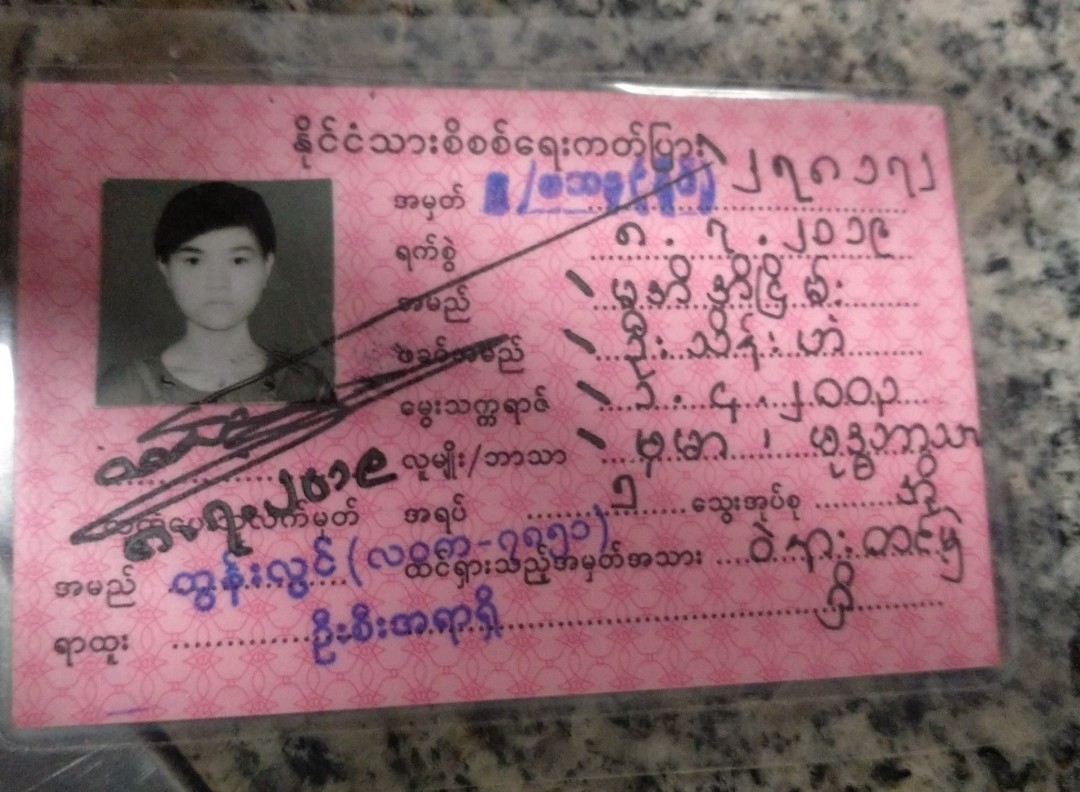 နိုင်ငံသားစိစစ်ရေးကတ်ပြား
အမှတ် ၂၇၈၁၇၂
ရက်စွဲ ၈.၇.၂၀၁၉
အမည် မအိအိငြိမ်း
ဖခင်အမည် ဦးသိန်းဟံ
မွေးသက္ကရာဇ် ၁.၄.၂၀၀၃
လူမျိုး/ဘာသာ ဗမာ၊ ဗုဒ္ဓဘာသာ
အရပ် ၅ သွေးအုပ်စု အို
ထင်ရှားသည့်အမှတ်အသား ဝဲ
ထုတ်ပေးသူလက်မှတ်
အမည် ထွန်းလွင် (လဝက-၇၈၅၁)
ရာထူး ဦးစီးအရာရှိ